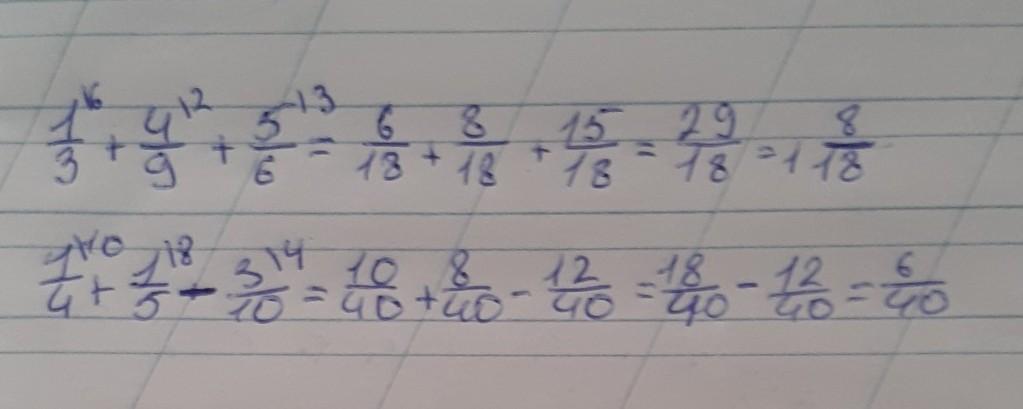 1/3\6 + 4/9\2 + 5/6\3 = 6/18 + 8/18 + 15/18 = 29/18 = 1 8/18
1/4\10 + 1/5\8 - 3/10\4 = 10/40 + 8/40 - 12/40 = 18/40 - 12/40 = 6/40